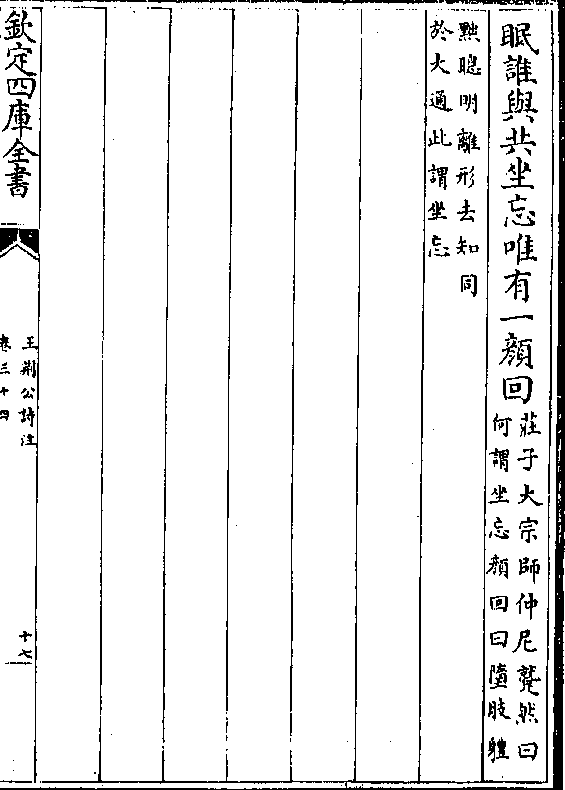 眠誰與共坐忘唯有一顏回
莊子大宗師仲尼蹵然曰
何謂坐忘顏回曰墮肢體
黜聰明離形去知同
於大通此謂坐忘
欽定四庫全書
王荆公詩注
卷三十四
十七